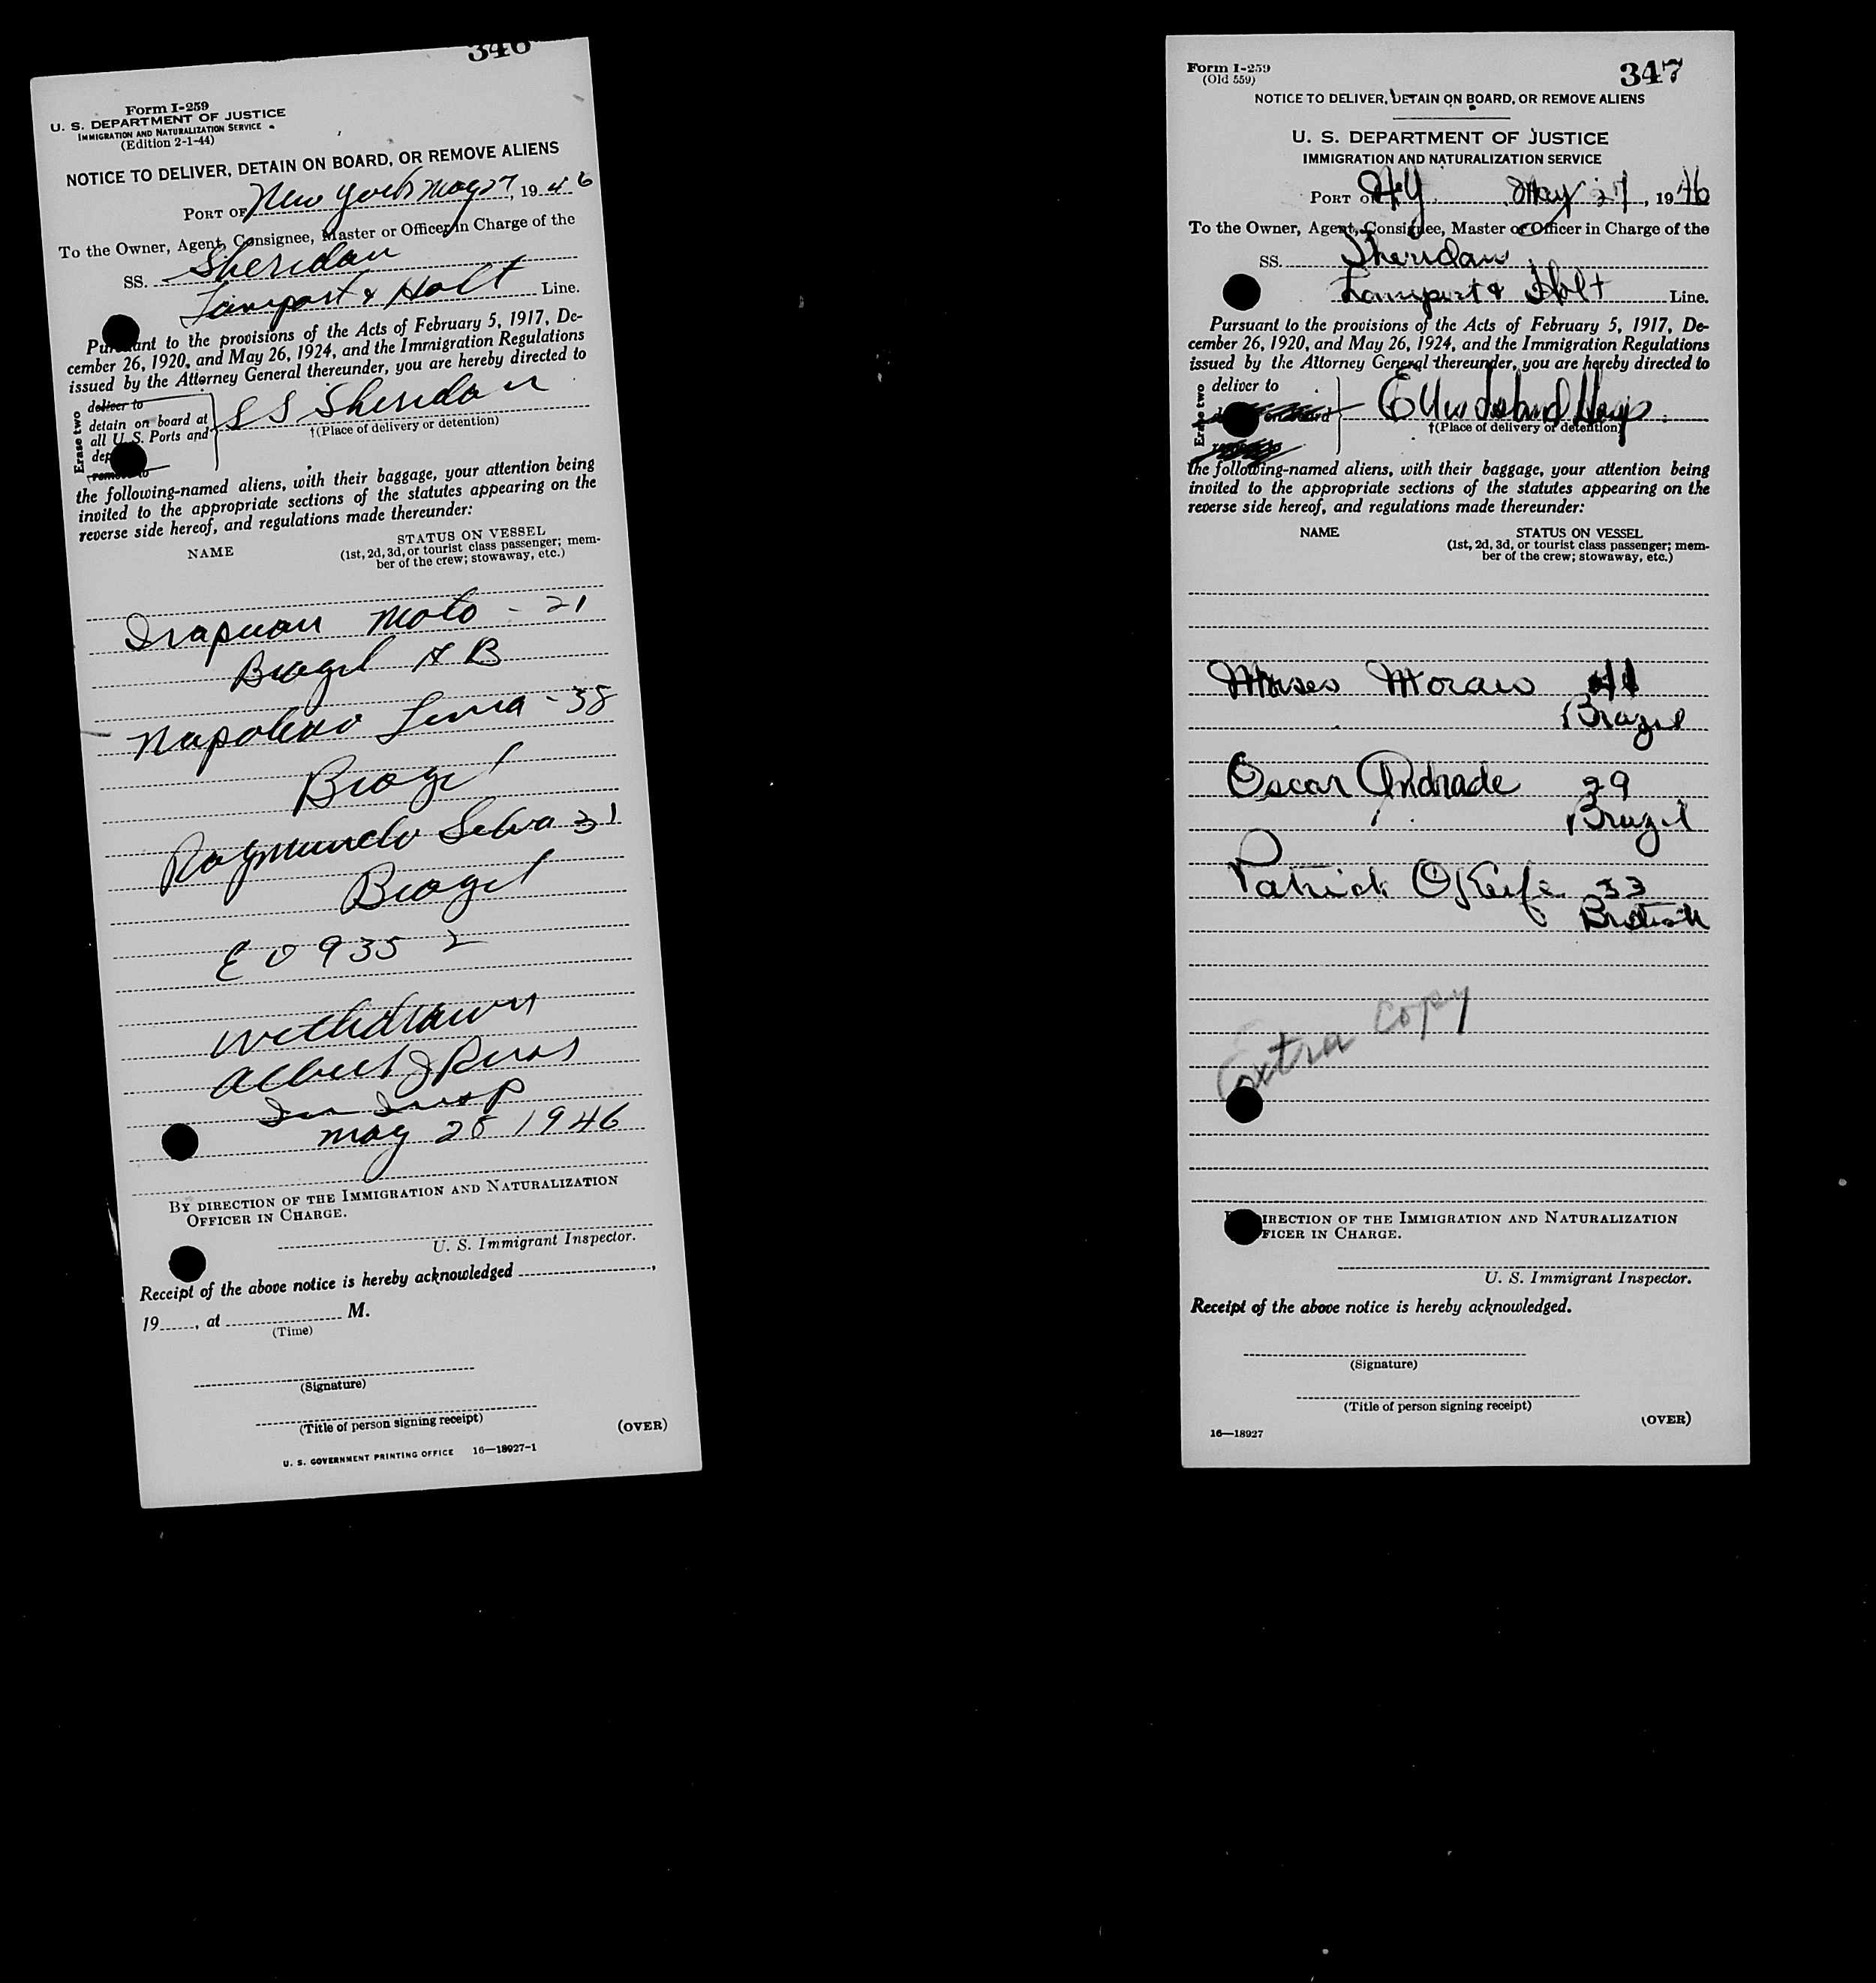 346
Form I-259
U. S. DEPARTMENT OF JUSTICE
IMMIGRATION AND NATURALIZATION SERVICE
(Edition 2-1-44)
NOTICE TO DELIVER, DETAIN ON BOARD, OR REMOVE ALIENS
PORT OF New York May 27, 1946
To the Owner, Agent, Consignee, Master or Officer in Charge of the
SS. Sheridan
Lamport & Holt Line.
Pursuant to the provisions of the Acts of February 5, 1917, De-
cember 26, 1920, and May 26, 1924, and the Immigration Regulations
issued by the Attorney General thereunder, you are hereby directed to
Erase two
deliver to
detain on board at
all U. S. Ports and
dep
remove to
SS Sheridan
†(Place of delivery or detention)
the following-named aliens, with their baggage, your attention being
invited to the appropriate sections of the statutes appearing on the
reverse side hereof, and regulations made thereunder:
NAME
STATUS ON VESSEL
(1st, 2d, 3d, or tourist class passenger; mem-
ber of the crew; stowaway, etc.)
Irapuan Moto - 21
Brazil AB
Napoleao Lima - 38
Brazil
Raymundo Silva 31
Brazil
E O 9352
Withdrawn
Albert J
Im Insp
May 28 1946
BY DIRECTION OF THE IMMIGRATION AND NATURALIZATION
OFFICER IN CHARGE.
U. S. Immigrant Inspector.
Receipt of the above notice is hereby acknowledged ,
19 , at M.
(Time)
(Signature)
(Title of person signing receipt)
(OVER)
U. S. GOVERNMENT PRINTING OFFICE 16—18927-1
Form I-259
(Old 559)
347
NOTICE TO DELIVER, DETAIN ON BOARD, OR REMOVE ALIENS
U. S. DEPARTMENT OF JUSTICE
IMMIGRATION AND NATURALIZATION SERVICE
PORT OF NY May 27, 1946
To the Owner, Agent, Consignee, Master or Officer in Charge of the
SS. Sheridan
Lamport & Holt Line.
Pursuant to the provisions of the Acts of February 5, 1917, De-
cember 26, 1920, and May 26, 1924, and the Immigration Regulations
issued by the Attorney General thereunder, you are hereby directed to
Erase two
deliver to
on board
Ellis Island Hosp
†(Place of delivery or detention)
the following-named aliens, with their baggage, your attention being
invited to the appropriate sections of the statutes appearing on the
reverse side hereof, and regulations made thereunder:
NAME
STATUS ON VESSEL
(1st, 2d, 3d, or tourist class passenger; mem-
ber of the crew; stowaway, etc.)
Moises Morais 41
Brazil
Oscar Andrade 29
Brazil
Patrick O'Keife 33
British
Extra copy
DIRECTION OF THE IMMIGRATION AND NATURALIZATION
OFFICER IN CHARGE.
U. S. Immigrant Inspector.
Receipt of the above notice is hereby acknowledged.
(Signature)
(Title of person signing receipt)
(OVER)
16—18927